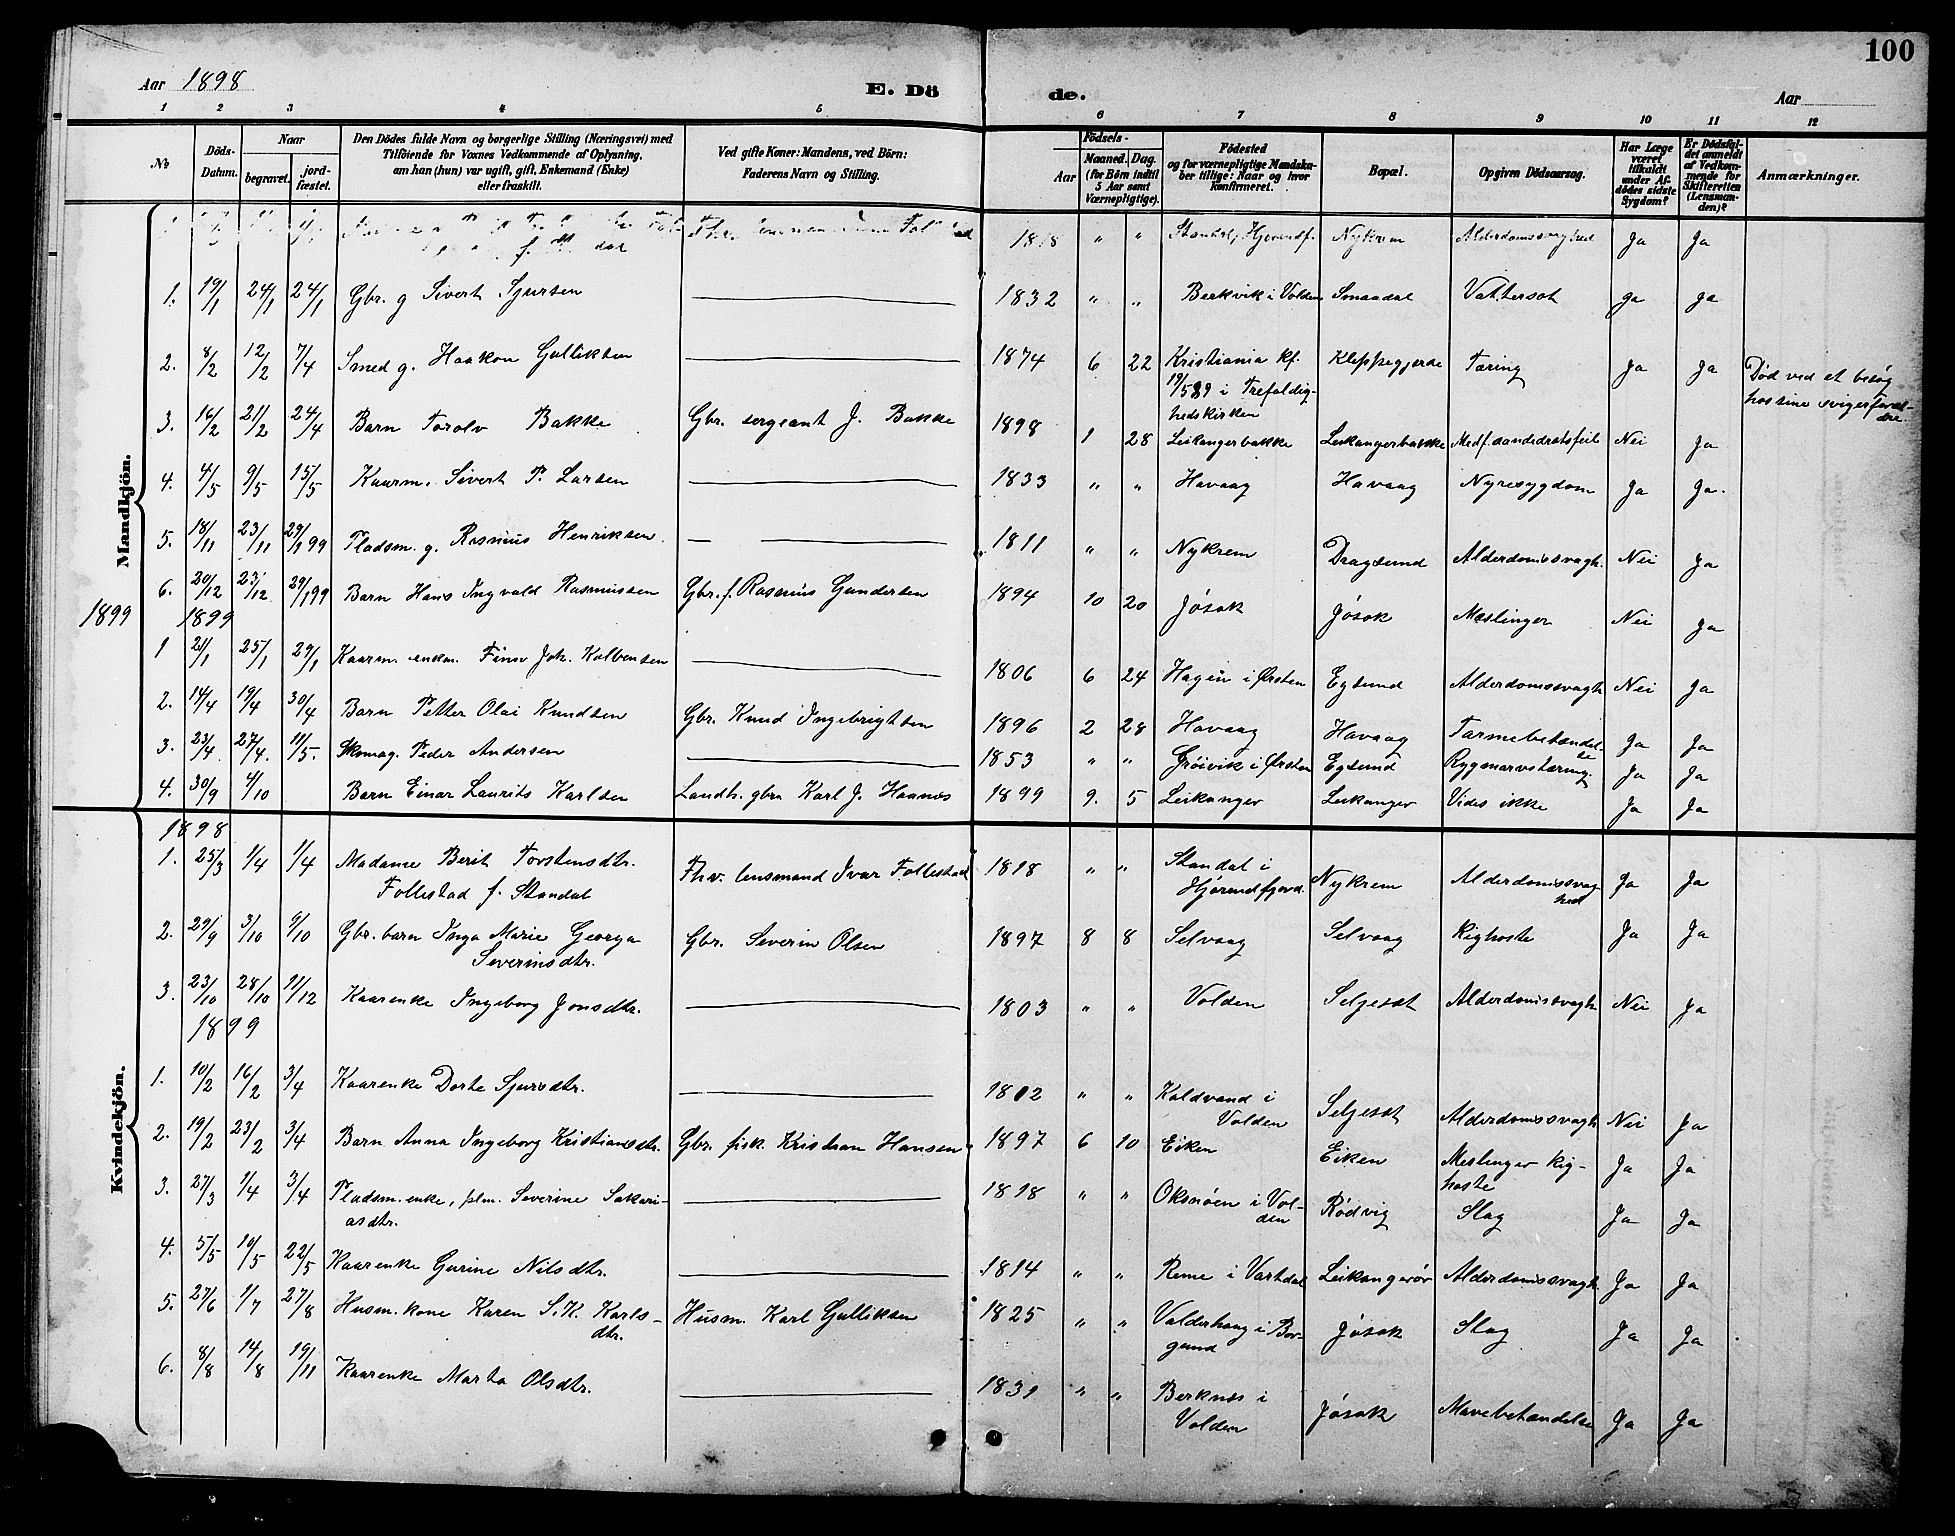 100
Aar 1898
E. Dö
de.
Aar
1 2 3 4 5 6 7 8 9 10 11 12
No
Döds-Datum.
Naar
begravet.
jord-fæstet.
Den Dödes fulde Navn og borgerlige Stilling (Næringsvei) med
Tilföiende for Voxnes Vedkommende af Oplysning,
om han (hun) var ugift, gift, Enkemand (Enke)
eller fraskilt.
Ved gifte Koner: Mandens, ved Börn:
Faderens Navn og Stilling.
Födsels-
Aar
Maaned. Dag.
(for Börn indtil
5 Aar samt
Værnepligtige).
Födested
og for værnepligtige Mandska-
ber tillige: Naar og hvor
konfirmeret.
Bopæl.
Opgiven Dödsaarsag.
Har Læge
været
tilkaldt
under Af-
dödes sidste
Sygdom?
Er Dödsfal-
det anmeldt
af Vedkom-
mende for
Skifteretten
(Lensman-
den)?
Anmærkninger.
Mandkjön.
1818 " " Nykrem Alderdomssvaghed Ja Ja
1. 19/1 24/1 24/1 Gbr. g Sivert Sjursen 1832 " " Berkvik i Volden Smaadal Vattersot ja ja
2. 8/2 12/2 7/4 Smed g. Haakon Gulliksen 1874 6 22 Kristiania kf. Kleppegjerde Tæring Ja Ja Död ved et besøg
19/5 89 i Trefoldig- hos sine svigerforæl-
hedskirken dre.
3. 16/2 21/2 24/4 Barn Torolv Bakke Gbr. sergeant J. Bakke 1898 1 28 Leikangerbakke Leikangerbakke Medf. aandedrætsfeil Nei Ja
4. 4/5 9/5 15/5 Kaarm. Sivert P. Larsen 1833 " " Havaag Havaag Nyresygdom Ja Ja.
5. 18/11 23/11 29/1 99 Pladsm. g. Rasmus Henriksen. 1811 " " Nykrem Dragsund Alderdomssvagh. Nei Ja
6. 20/12 23/12 29/1 99 Barn Hans Ingvald Rasmussen Gbr. f. Rasmus Gundersen 1894 10 20 Jøsok Jøsok Mæslinger Nei Ja
1899 1899
1 21/1 25/1 29/1 Kaarm. enkm. Finn Joh. Kolbensen 1806 6 24 Hagen i Ørsten Egsund Alderdomssvagh Nei Ja
2. 14/4 19/4 30/4 Barn Petter Olai Knudsen Gbr. Knud Ingebrigtsen 1896 2 28 Havaag Havaag Tarmebetændel-
se Ja Ja
3. 23/4 27/4. 11/5. Skomag. Peder Andersen 1853 " " Grøivik i Ørsten Egsund Rygmarvstæring. Ja Ja
4. 30/9 4/10 Barn Einar Laurits Karlsen Landh. gbr. Karl J. Haanes 1899 9. 5 Leikanger Leikanger Vides ikke Ja Ja
Kvindekjön.
1898
1. 25/3 1/4 1/4 Madame Berit Torstensdtr. Fhv. lensmand Ivar Follestad 1818 " " Standal i Nykrem Alderdomssvag- Ja Ja
Follestad f. Standal Hjørundfjord. hed
2. 29/9 3/10 9/10 Gbr. barn Inga Marie Georga Gbr. Severin Olsen 1897 8 8 Selvaag Selvaag Kighoste Ja Ja
Severinsdtr.
3. 23/10 28/10 11/12 Kaarenke Ingeborg Jonsdtr. 1803 " " Volden Seljesæt Alderdomssvagh Nei Ja
1899
1. 10/2 16/2 3/4 Kaarenke Dorte Sjursdtr. 1802 " " Koldvand i Seljesæt Alderdomssvagh Nei Ja
Volden
2. 19/2 23/2 3/4 Barn Anna Ingeborg Kristiansdtr. Gbr. fisk. Kristian Hansen 1897 6 10 Eiken Eiken Meslinger kig- Ja Ja
hoste
3. 27/3 1/4 3/4 Pladsm. enke, plm. Severine Sakari- 1818 " " Oksnøen i Vol- Rødvig Slag Ja Ja
asdtr. den
4. 5/5 10/5 22/5 Kaarenke Gurine Nilsdtr. 1814 " " Reme i Vartdal Leikangerør Alderdomssvagh Ja Ja
5. 27/6 1/7 27/8 Husm. kone Karen S. K. Karls- Husm. Karl Gulliksen 1825 " " Valderhaug i Bor- Jøsok Slag Ja Ja
dtr. gund
6. 8/8 14/8 19/11 Kaarenke Marta Olsdtr. 1831 " " Berknes i Jøsok Mavebetændelse Ja Ja
Volden